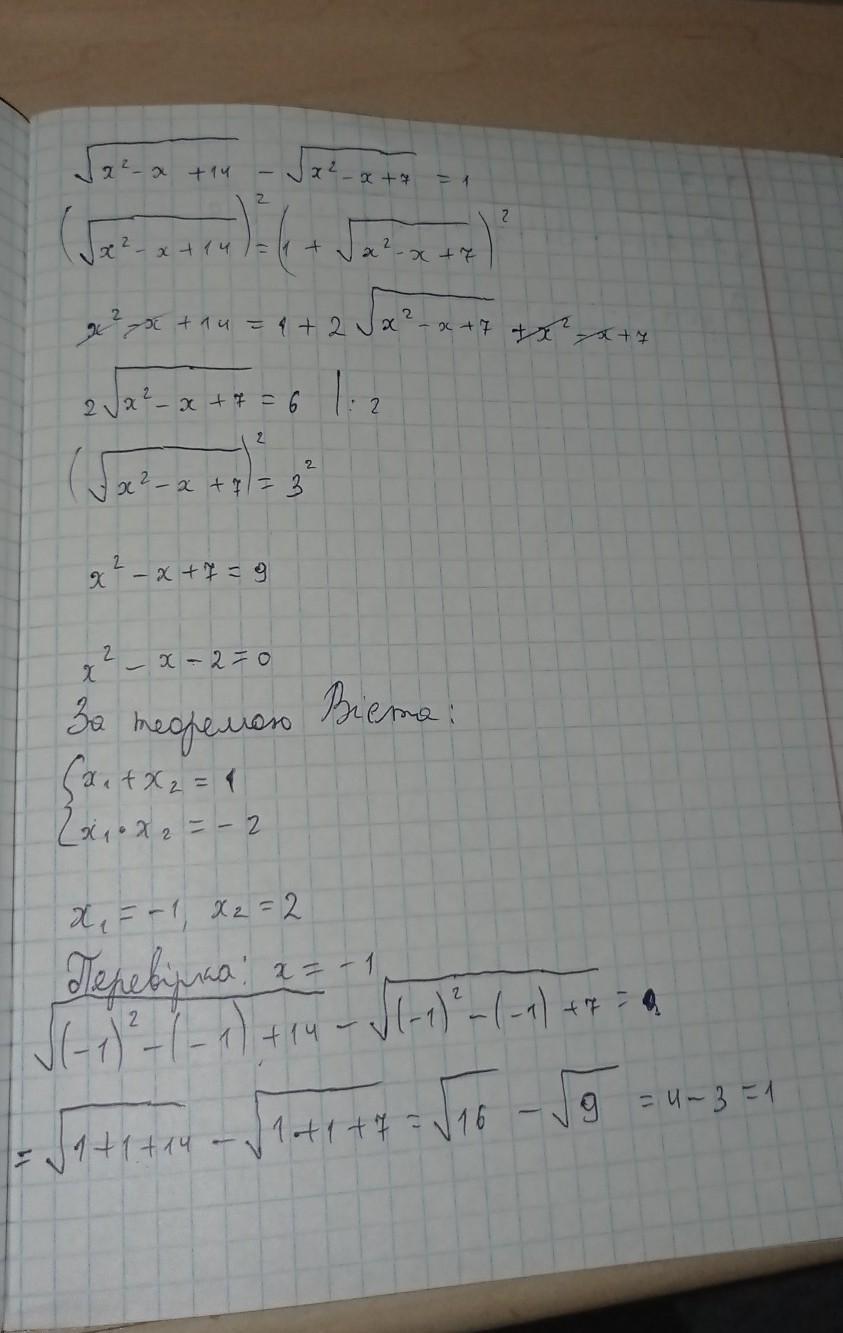 √(x² - x + 14) - √(x² - x + 7) = 1
(√(x² - x + 14))² = (1 + √(x² - x + 7))²
x² - x + 14 = 1 + 2√(x² - x + 7) + x² - x + 7
2√(x² - x + 7) = 6 |: 2
(√(x² - x + 7))² = 3²
x² - x + 7 = 9
x² - x - 2 = 0
За теоремою Вієта:
{x₁ + x₂ = 1
{x₁ • x₂ = - 2
x₁ = -1, x₂ = 2
Перевірка: x = -1
√((-1)² - (-1) + 14) - √((-1)² - (-1) + 7) =
= √(1+1+14) - √(1+1+7) = √16 - √9 = 4 - 3 = 1